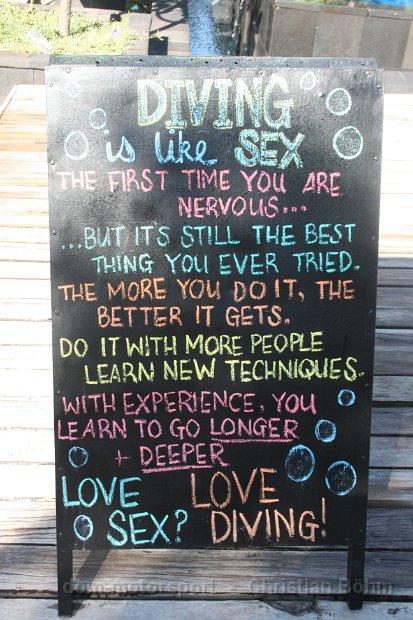 DIVING
is like SEX
THE FIRST TIME YOU ARE
NERVOUS...
...BUT IT'S STILL THE BEST
THING YOU EVER TRIED.
THE MORE YOU DO IT, THE
BETTER IT GETS.
DO IT WITH MORE PEOPLE
LEARN NEW TECHNIQUES.
WITH EXPERIENCE, YOU
LEARN TO GO LONGER
+ DEEPER
LOVE LOVE
SEX? DIVING!
Christian Böhm